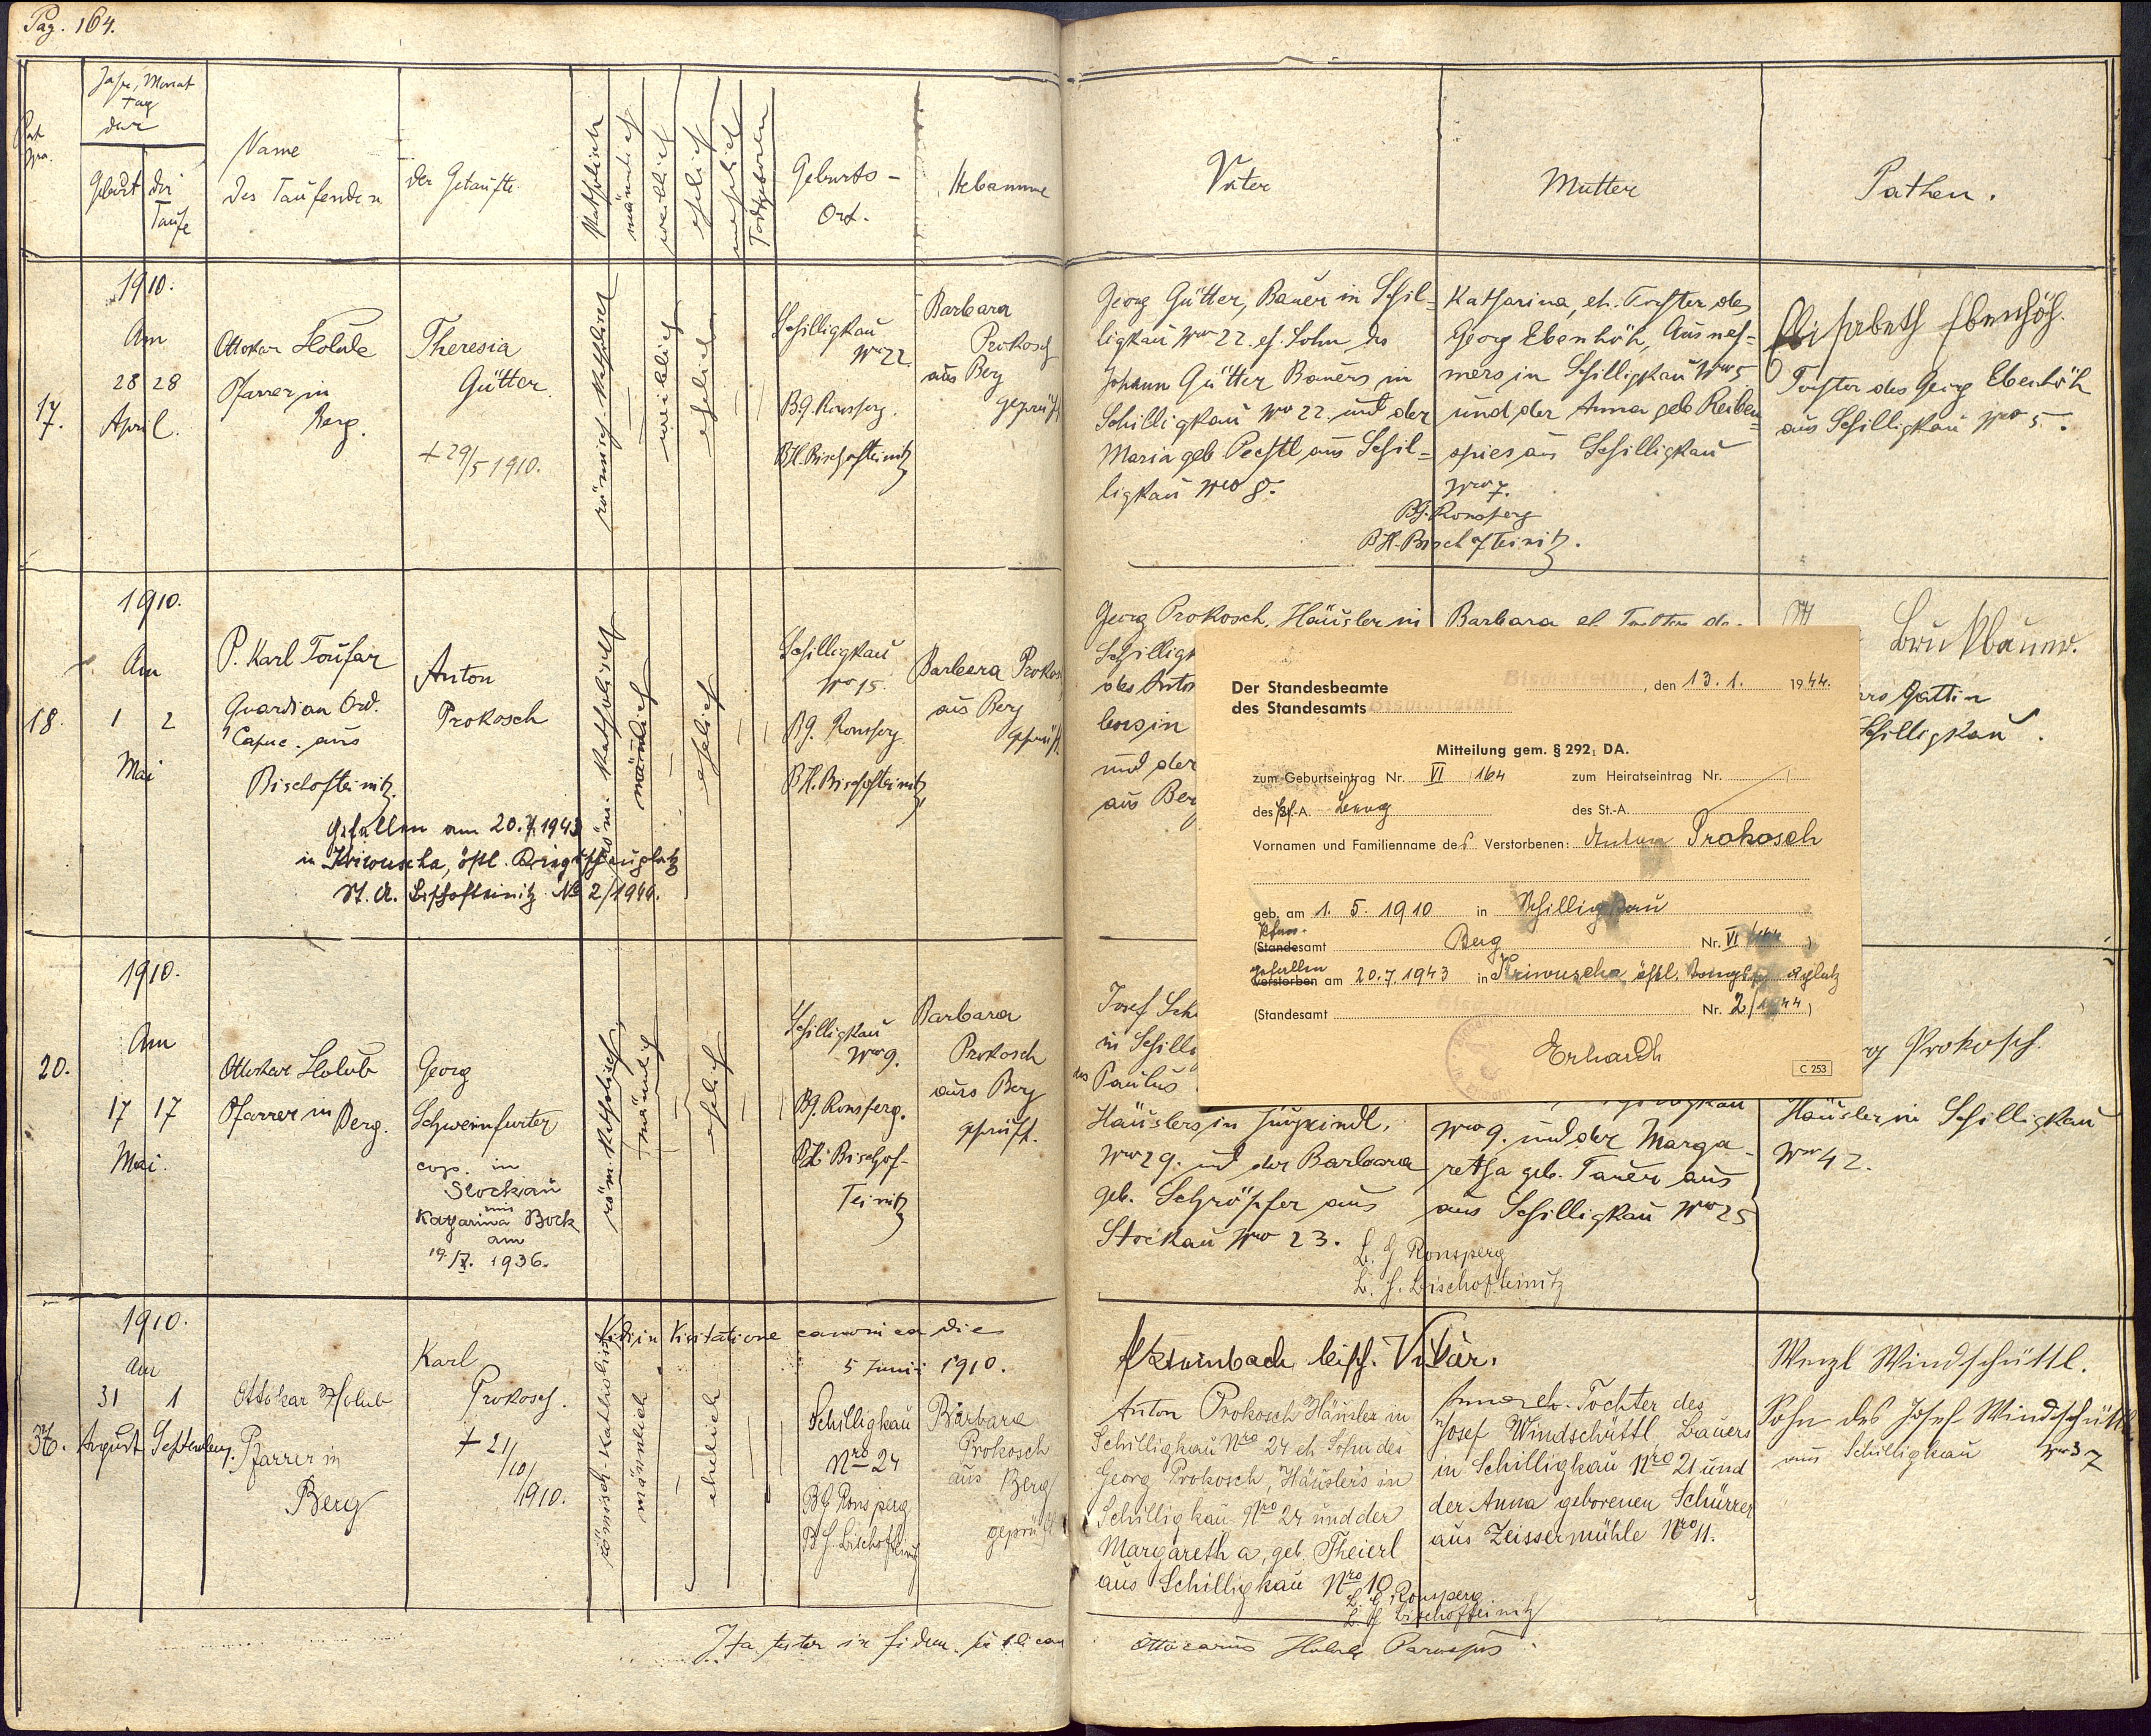 Pag. 164.
Jahr, Monat
Tag
der
Geburt
der
Taufe
Name
des Taufenden
der Getaufte
Katholisch
männlich
weiblich
ehelich
unehelich
Todtgeboren
Geburts-
Ort.
Hebamme
Vater
Mutter
Pathen.
17.
1910.
Am
28 28
April.
Ottokar Holub
Pfarrer in
Berg.
Theresia
Gütter
+ 29/5 1910.
römisch-katholisch
weiblich
ehelich
Schilligkau
Nro 22.
BG. Ronsperg.
BH. Bischofteinitz
Barbara
Prokosch
aus Berg
geprüft
Georg Gütter, Bauer in Schil-
ligkau Nro 22. eh. Sohn des
Johann Gütter Bauers in
Schilligkau Nro 22. und der
Maria geb. Pechtl aus Schil-
ligkau Nro 8.
Katharina, eh. Tochter des
Georg Ebenhöh, Ausneh-
mers in Schilligkau Nro 5
und der Anna geb. Reiben-
spies aus Schilligkau
Nro 7.
BG. Ronsperg
BH. Bischofteinitz.
Elisabeth Ebenhöh.
Tochter des Georg Ebenhöh
aus Schilligkau Nro 5.
18.
1910.
Am
1 2
Mai
P. Karl Toufar
Guardian Ord.
Capuc. aus
Bischofteinitz.
Anton
Prokosch
gefallen am 20.7.1943
in Kriwuscha, östl. Kriegsschauplatz
St. A. Bischofteinitz No 2/1944.
röm. katholisch
männlich
ehelich
Schilligkau
Nro 15.
BG. Ronsperg.
BH. Bischofteinitz
Barbara Prokosch
aus Berg
geprüft.
Georg Prokosch, Häusler in
Schilligk
des Anton
lers in
und der
aus Berg
Barbara eh. Tochter des
Bruckbauer.
Gattin
Schilligkau.
Der Standesbeamte
des Standesamts
, den 13. 1. 1944.
Mitteilung gem. § 292, DA.
zum Geburtseintrag Nr. VI 164 zum Heiratseintrag Nr.
des Pf.-A. Berg des St.-A.
Vornamen und Familienname des Verstorbenen: Anton Prokosch
geb. am 1. 5. 1910 in Schilligkau
Pfarr.
(Standesamt Berg Nr. VI/164)
gefallen
verstorben am 20.7.1943 in Kriwuscha, östl. Kriegsschauplatz
(Standesamt Nr. 2/1944)
Erhardt
C 253
20.
1910.
Am
17 17
Mai.
Ottokar Holub
Pfarrer in Berg.
Georg
Schweinfurter
cop. in
Stockau
mit
Katharina Bock
am
19./X. 1936.
röm. katholisch
männlich
ehelich
Schilligkau
Nro 9.
BG. Ronsperg.
BH. Bischof-
Teinitz
Barbara
Prokosch
aus Berg
geprüft.
Josef Sch
in Schilli
des Paulus
Häuslers in
Nro 29. und der Barbara
geb. Schröpfer aus
Stockau Nro 23.
Nro 9. und der Marga-
retha geb. Tauer aus
aus Schilligkau Nro 25
B. G. Ronsperg
B. H. Bischofteinitz
Prokosch.
Häusler in Schilligkau
Nro 42.
Vidi in Visitatione canonica die
5 Junii 1910.
Steinbach, bisch. Vikar.
36.
1910.
Am
31 1
August September.
Ottokar Holub
Pfarrer in
Berg
Karl
Prokosch.
+ 21/10/1910.
römisch-katholisch
männlich
ehelich
Schilligkau
Nro 24
BG Ronsperg
B.H. Bischofteinitz
Barbara
Prokosch
aus Berg
geprüft
Anton Prokosch Häusler in
Schilligkau Nro 24 eh. Sohn des
Georg Prokosch, Häuslers in
Schilligkau Nro 24 und der
Margaretha, geb. Theierl
aus Schilligkau Nro 10
Anna eh. Tochter des
Josef Windschüttl, Bauers
in Schilligkau Nro 21 und
der Anna geborenen Schürrer
aus Zeissermühle Nro 11.
B. G. Ronsperg
B. H. Bischofteinitz
Wenzl Windschüttl.
Sohn des Josef Windschüttl
aus Schilligkau Nro 37
Ita testor in fidem publicam
Ottocarus Holub Parochus